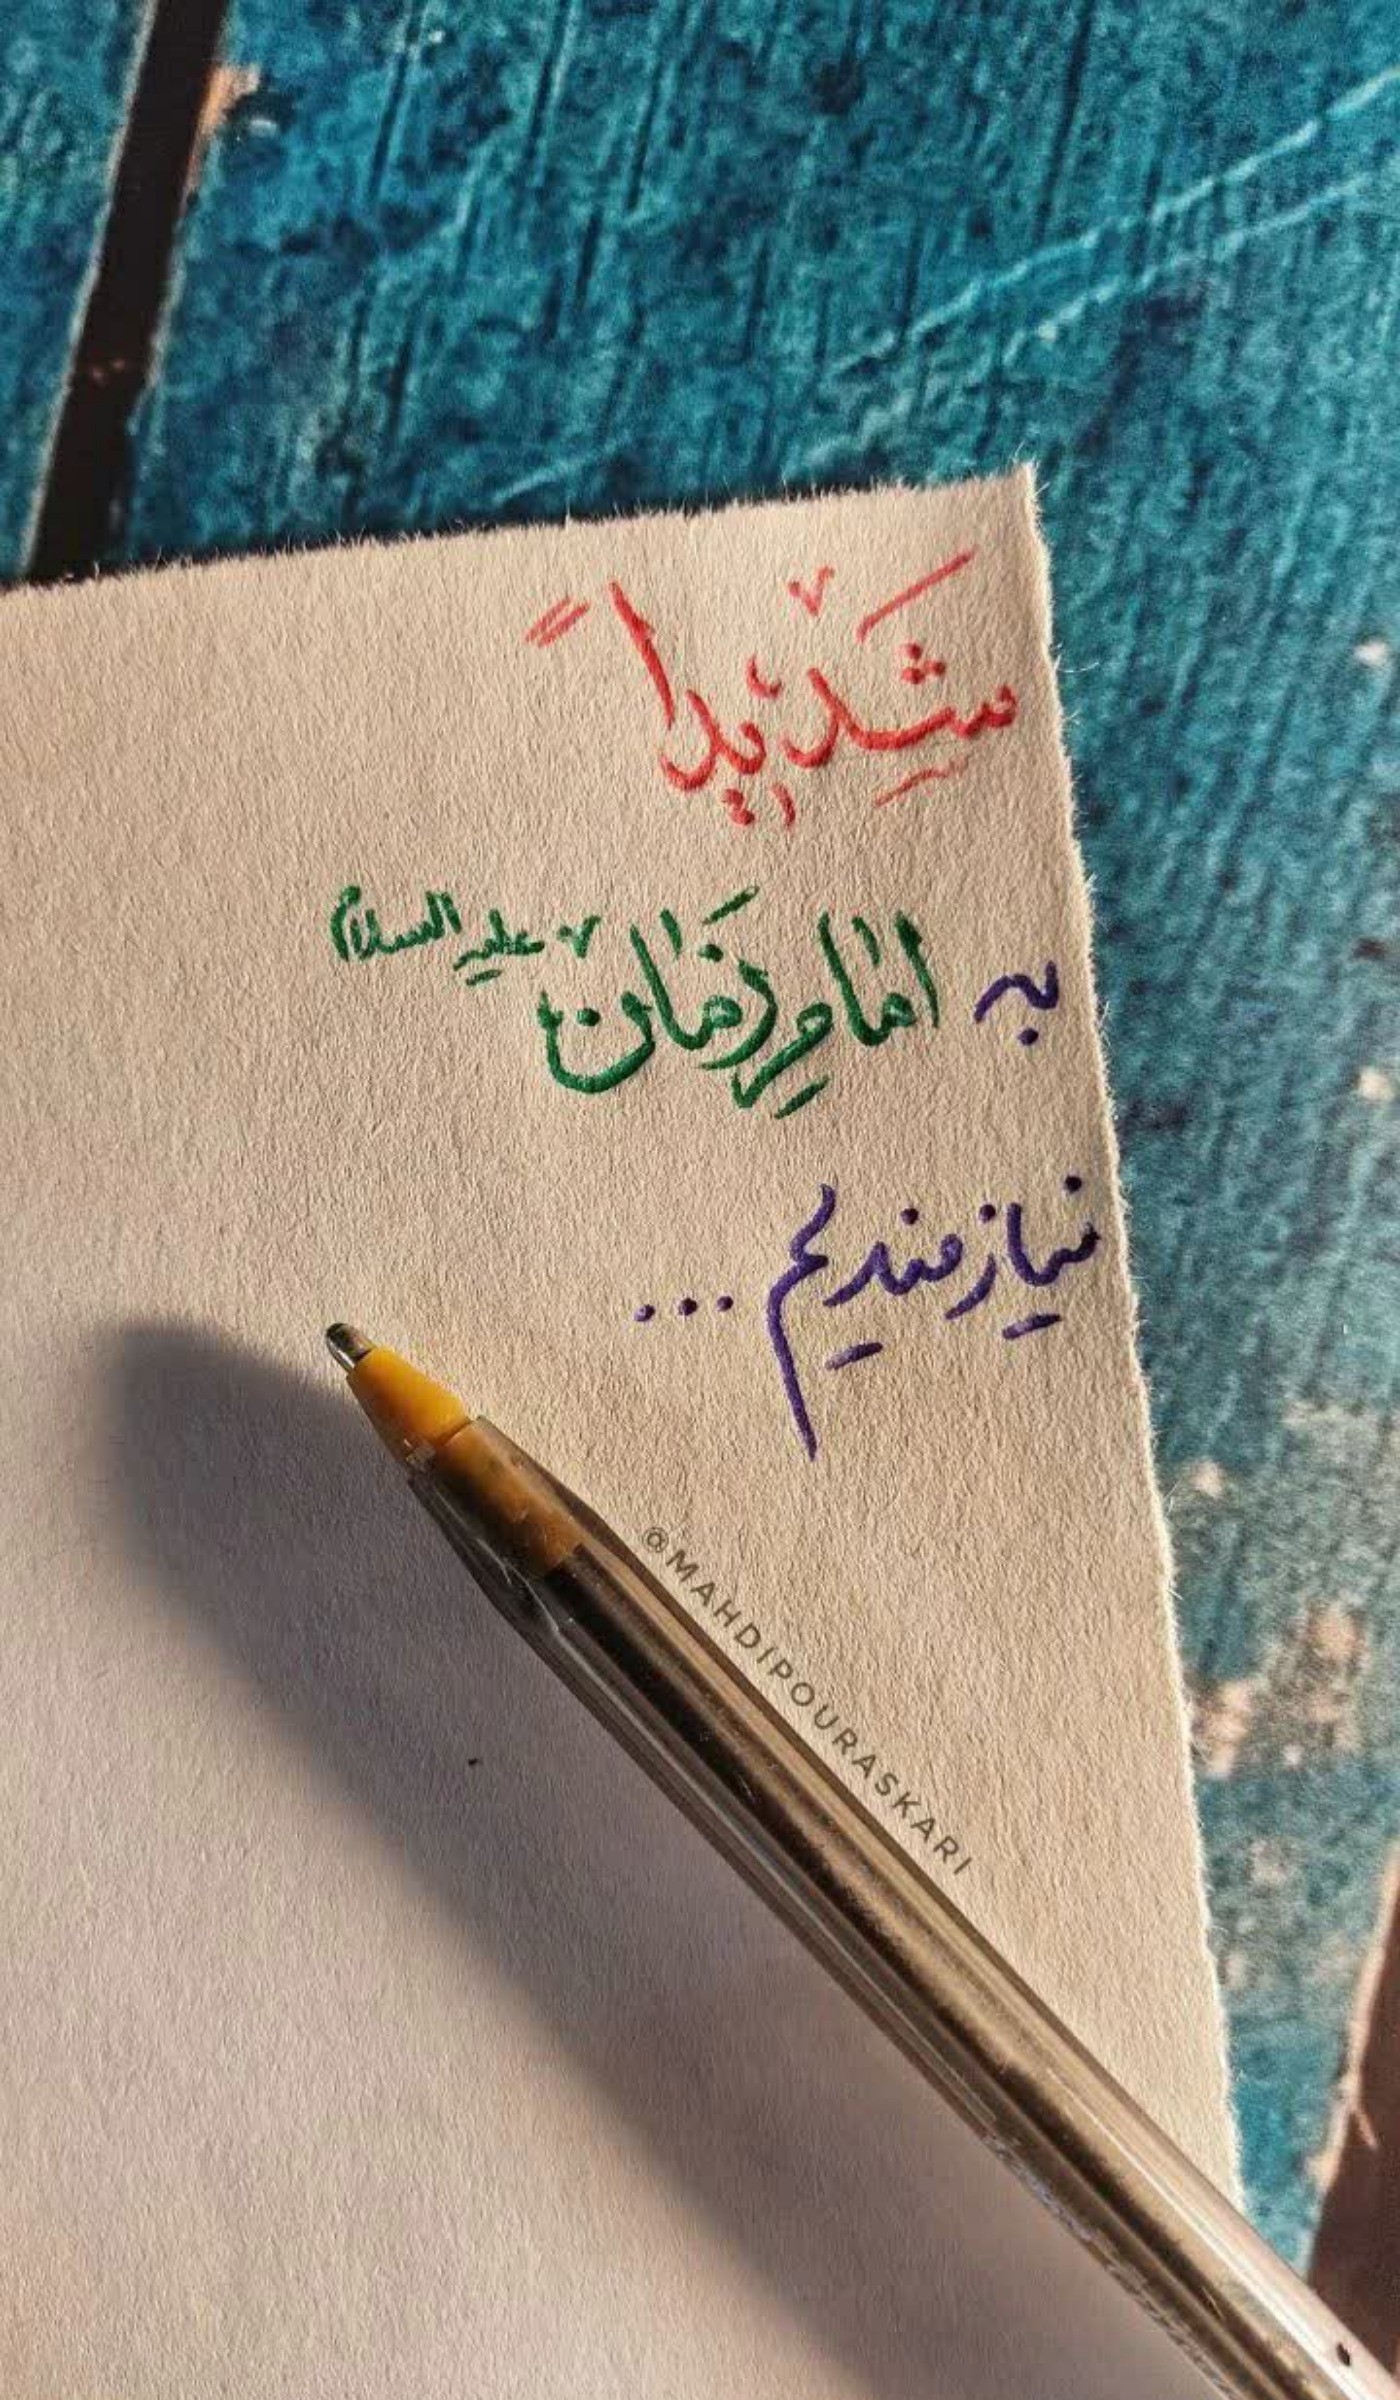 شَدیداً
به امام زمان علیه السلام
نیازمندیم ...
@MAHDIPOURASKARI